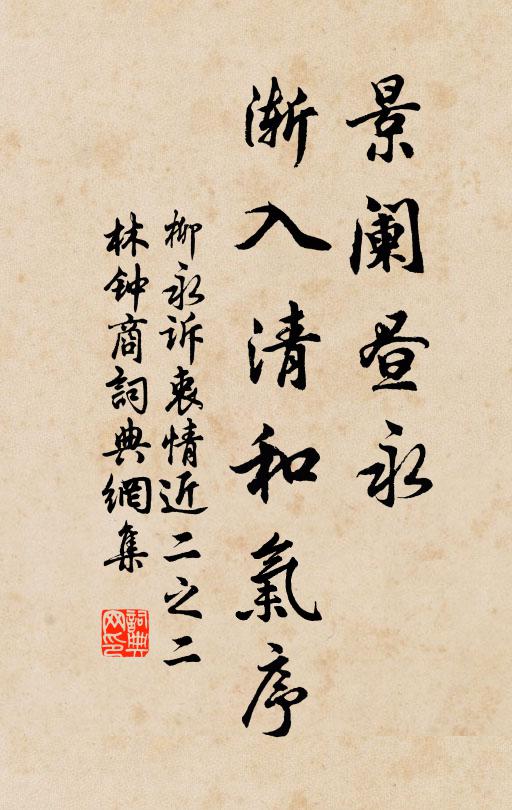 景阑昼永
渐入清和氣序
柳永诉衷情近二之二
林钟商詞典網集
詞典网印